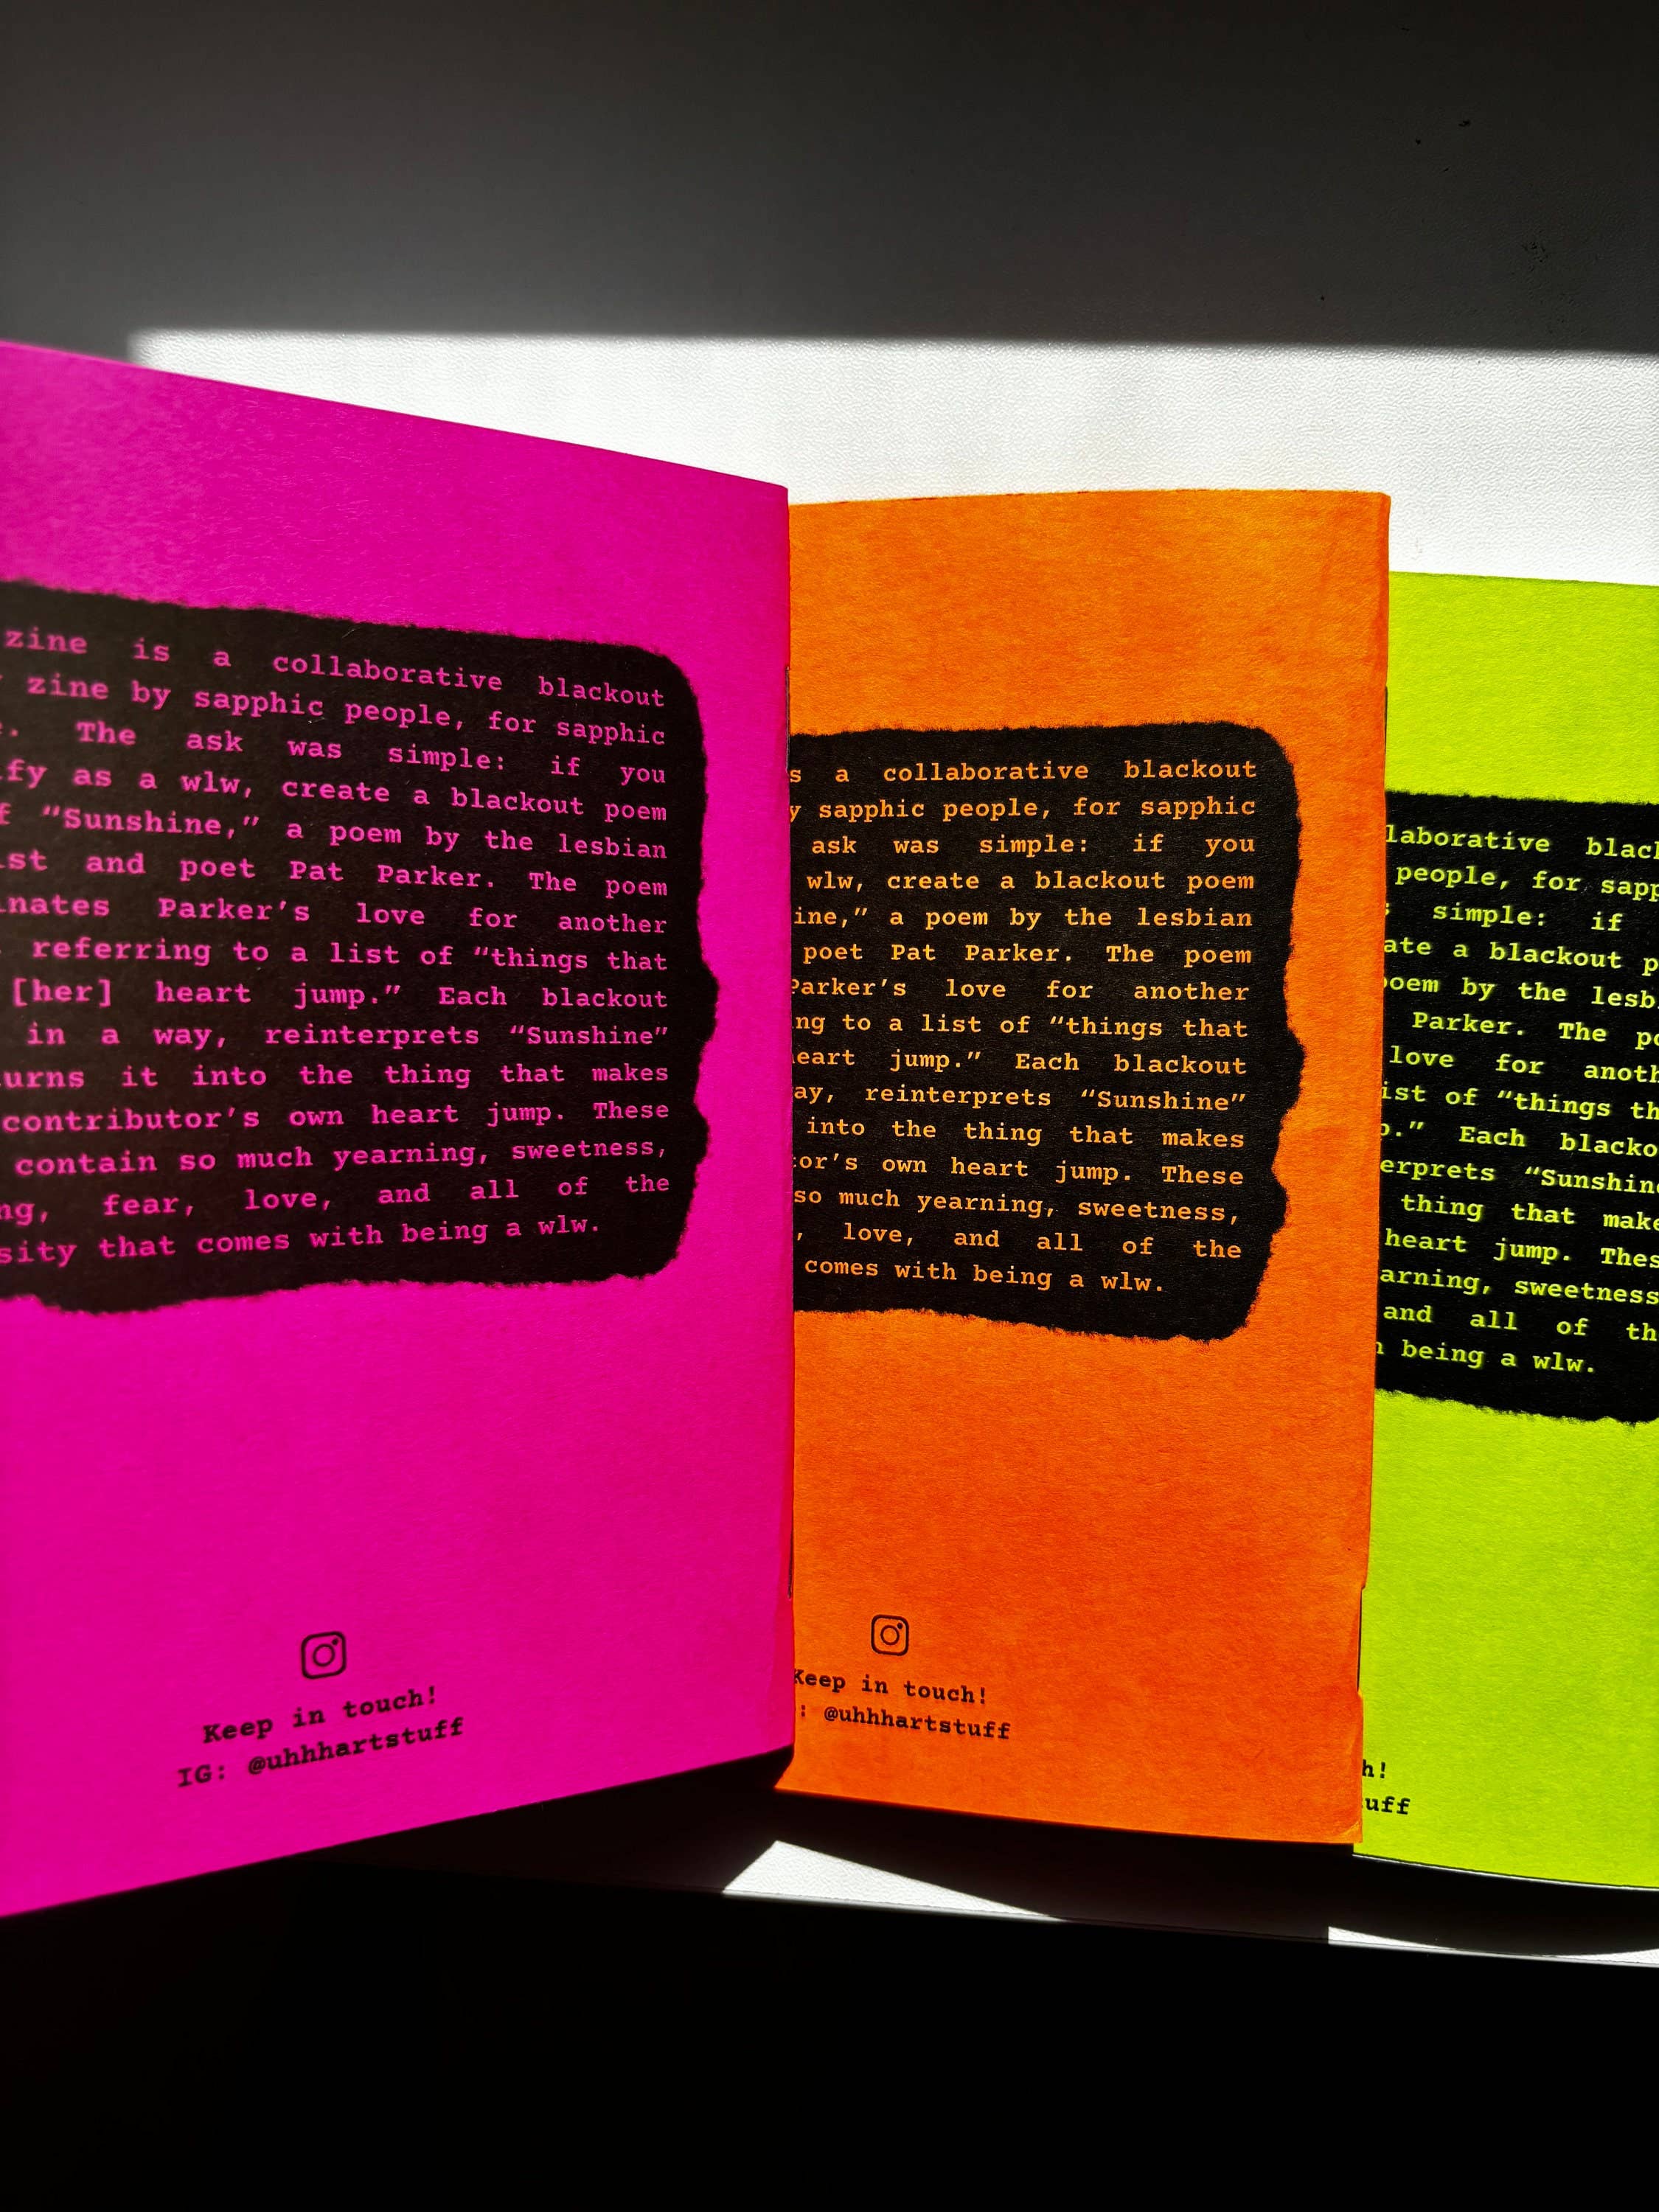 zine is a collaborative blackout
zine by sapphic people, for sapphic
The ask was simple: if you
as a wlw, create a blackout poem
“Sunshine,” a poem by the lesbian
and poet Pat Parker. The poem
Parker’s love for another
referring to a list of “things that
[her] heart jump.” Each blackout
in a way, reinterprets “Sunshine”
it into the thing that makes
contributor’s own heart jump. These
contain so much yearning, sweetness,
fear, love, and all of the
that comes with being a wlw.
Keep in touch!
IG: @uhhhartstuff
a collaborative blackout
sapphic people, for sapphic
ask was simple: if you
wlw, create a blackout poem
a poem by the lesbian
poet Pat Parker. The poem
Parker’s love for another
to a list of “things that
jump.” Each blackout
reinterprets “Sunshine”
into the thing that makes
own heart jump. These
so much yearning, sweetness,
love, and all of the
comes with being a wlw.
Keep in touch!
@uhhhartstuff
people, for
simple: if
a blackout
poem by the
Parker. The
love for
of “things
Each
“Sunshine
thing that
heart jump.
sweetness
and all of
being a wlw.